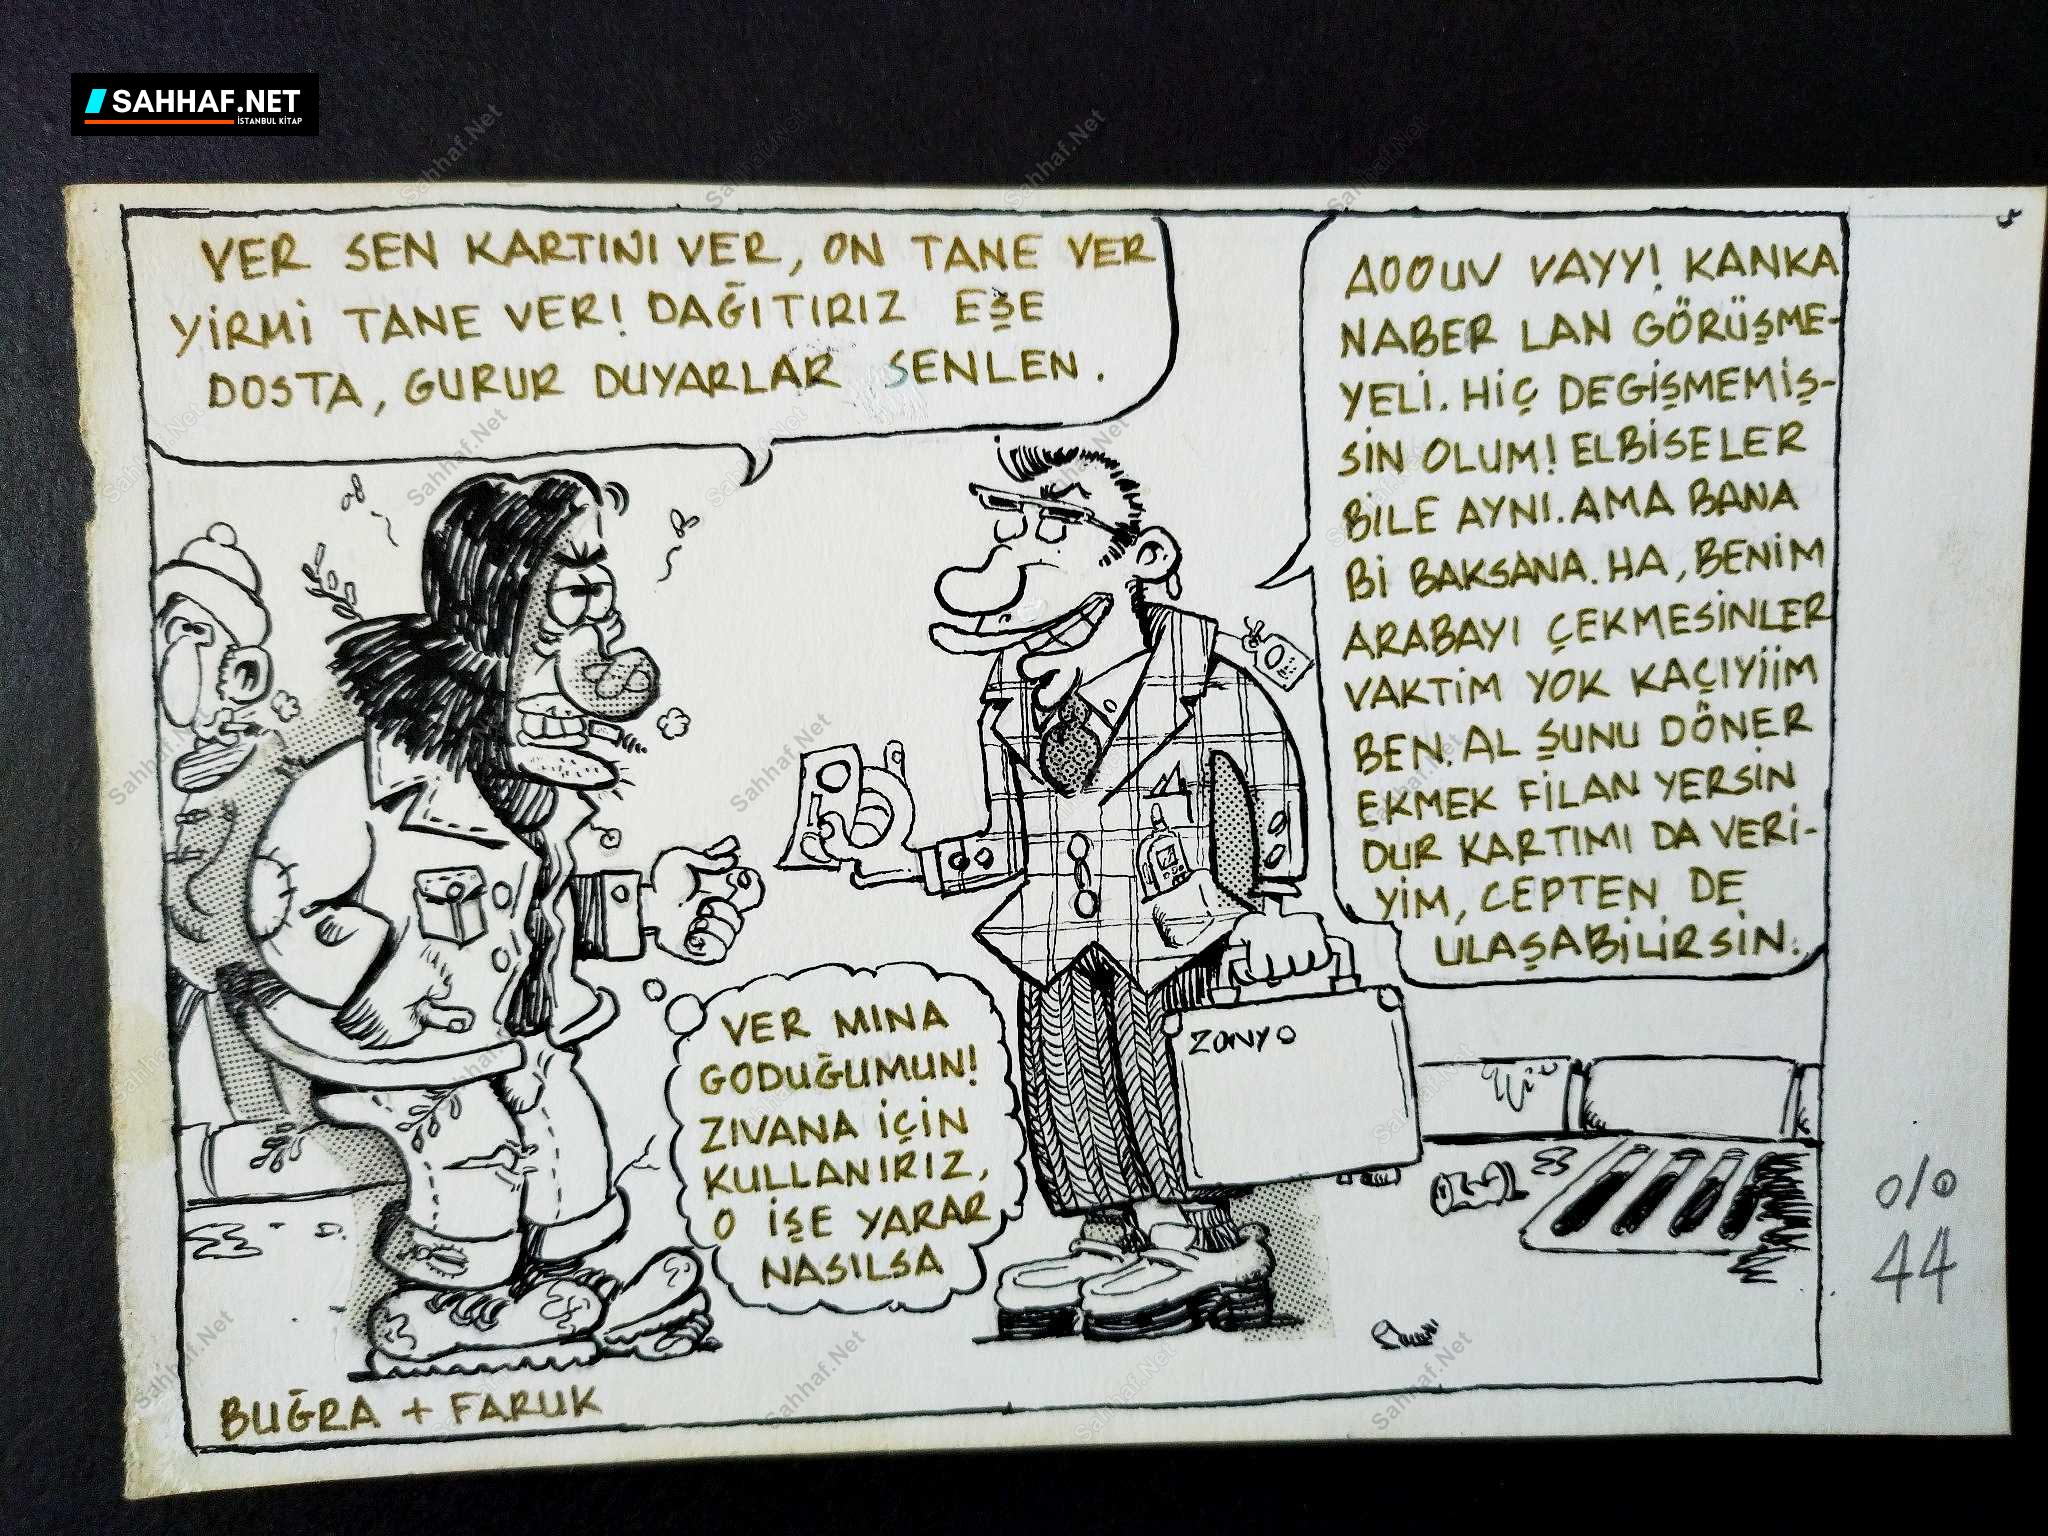 SAHHAF.NET
İSTANBUL KİTAP
VER SEN KARTINI VER, ON TANE VER
YİRMİ TANE VER! DAĞITIRIZ EŞE
DOSTA, GURUR DUYARLAR SENLEN.
AOOUV VAYY! KANKA
NABER LAN GÖRÜŞME-
YELİ. HİÇ DEGİŞMEMİŞ-
SİN OLUM! ELBİSELER
BİLE AYNI. AMA BANA
Bİ BAKSANA. HA, BENİM
ARABAYI ÇEKMESİNLER
VAKTİM YOK KAÇIYİİM
BEN. AL ŞUNU DÖNER
EKMEK FİLAN YERSİN
DUR KARTIMI DA VERİ-
YİM, CEPTEN DE
ULAŞABİLİRSİN.
VER MINA
GODUĞUMUN!
ZIVANA İÇİN
KULLANIRIZ,
O İŞE YARAR
NASILSA
ZONYO
BUĞRA + FARUK
0/0
44